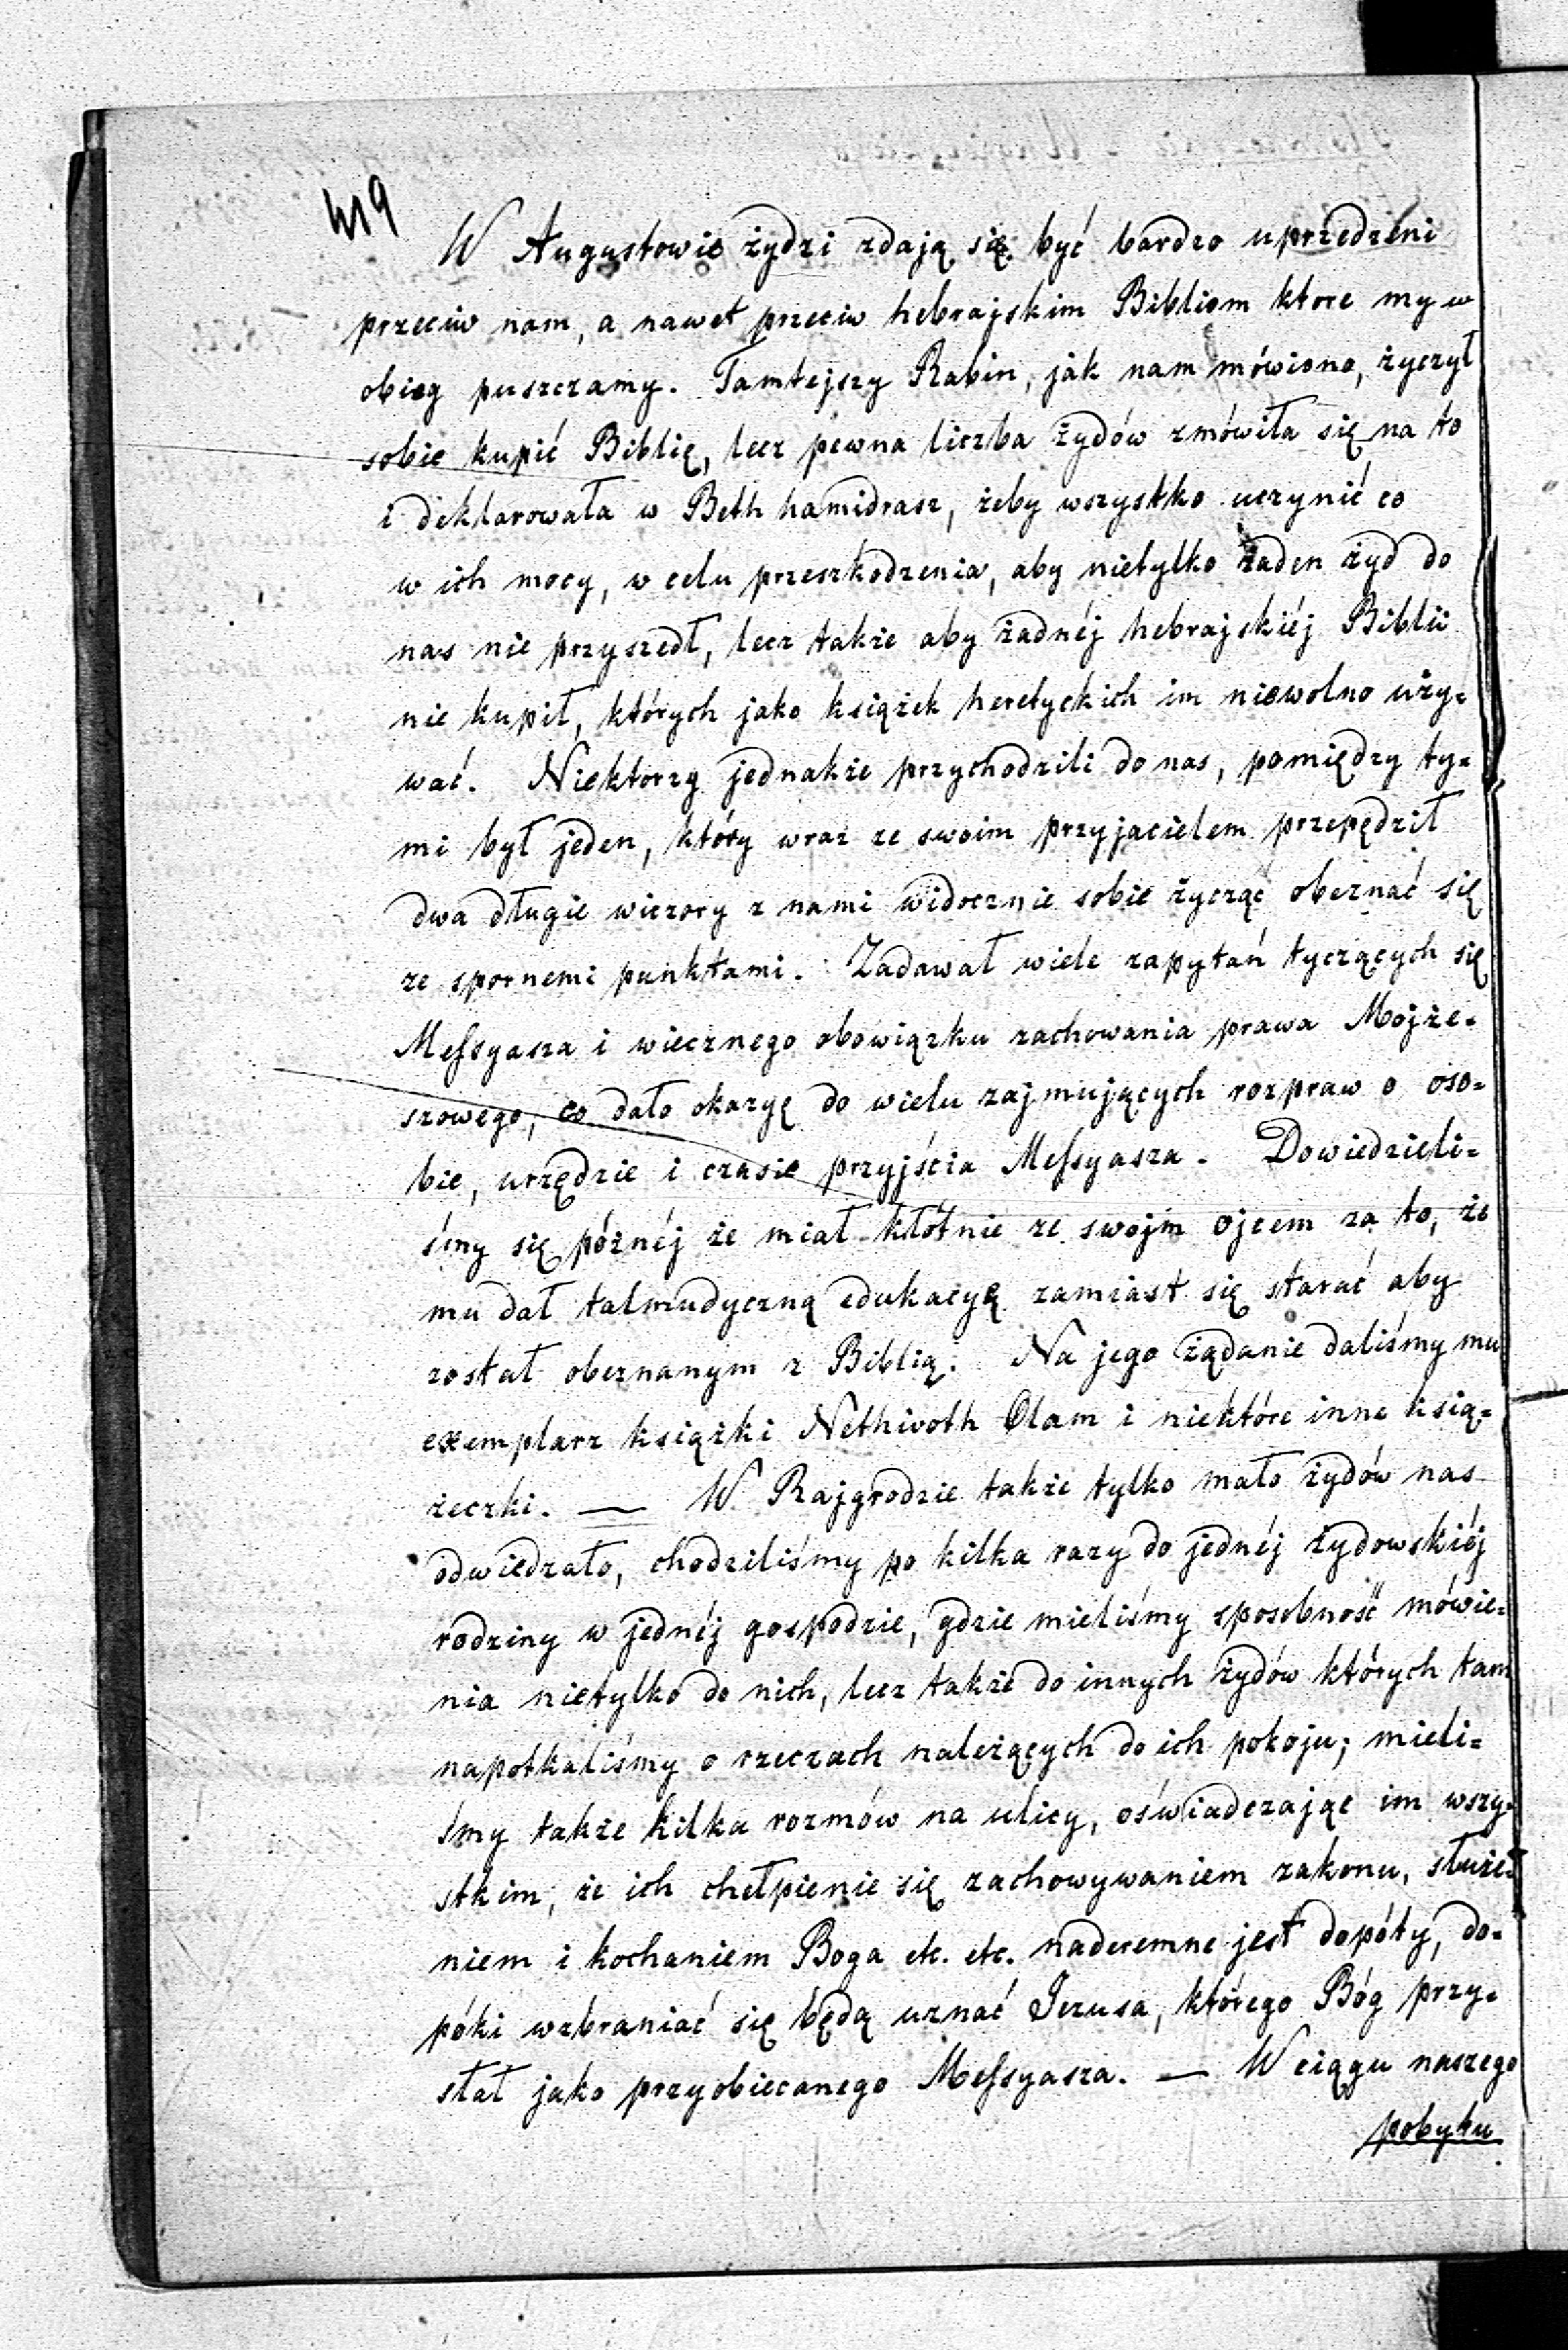 419
W Augustowie żydzi zdają się być bardzo uprzedzeni
przeciw nam, a nawet przeciw hebrajskim Bibliom ktore my w
obieg puszczamy. Tamtejszy Rabin, jak nam mówiono, życzył
sobie kupić Biblię, lecz pewna liczba żydów zmówiła się na to
i deklarowała w Beth hamidrasz, żeby wszystko uczynić co
w ich mocy, w celu przeszkodzenia, aby nietylko żaden żyd do
nas nie przyszedł, lecz także aby żadnéj hebrajskiéj Biblii
nie kupił, których jako książek heretyckich im niewolno uży=
wać. Niektorzy jednakże przychodzili do nas, pomiędzy ty=
mi był jeden, który wraz ze swoim przyjacielem przepędził
dwa długie wiczory z nami widocznie sobie życząć obeznać się
ze spornemi punktami. Zadawał wiele zapytań tyczących się
Meſsyasza i wiecznego obowiązku zachowania prawa Mojże=
szowego, co dało okazyę do wielu zajmujących rozpraw o oso=
bie, urzędzie i czasie przyjścia Meſsyasza. Dowiedzieli=
śmy się późnéj że miał kłótnie ze swojm ojcem za to, że
mu dał talmudyczną edukacyę zamiast się starać aby
został obeznanym z Biblią. Na jego żądanie daliśmy mu
exemplarz książki Nethivoth Olam i niektóre inne ksią=
żeczki. — W Rajgrodzie także tylko mało żydów nas
odwiedzało, chodziliśmy po kilka razy do jednéj żydowskiéj
rodziny w jednéj gospodzie, gdzie mieliśmy sposobność mówie=
nia nietylko do nich, lecz także do innych żydów których tam
napotkaliśmy o rzeczach należących do ich pokoju; mieli=
śmy także kilka rozmów na ulicy, oświadczając im wszy=
stkim, że ich chełpienie się zachowywaniem zakonu, służe=
niem i kochaniem Boga etc. etc. nadaremne jest dopóty, do=
póki wzbraniać się będą uznać Jezusa, którego Bóg przy=
słał jako przyobiecanego Meſsyasza. — W ciągu naszego
pobytu